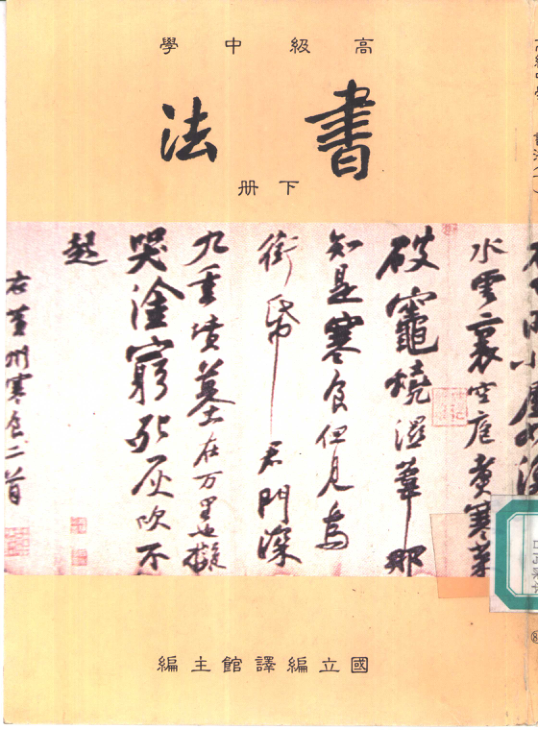 高級中學
書法
下冊
小屋如漁
水雲裏空庖煮寒菜
破竈燒濕葦那
知是寒食但見烏
銜帋君門深
九重墳墓在万里也擬
哭塗窮死灰吹不
起
右黃州寒食二首
國立編譯館主編